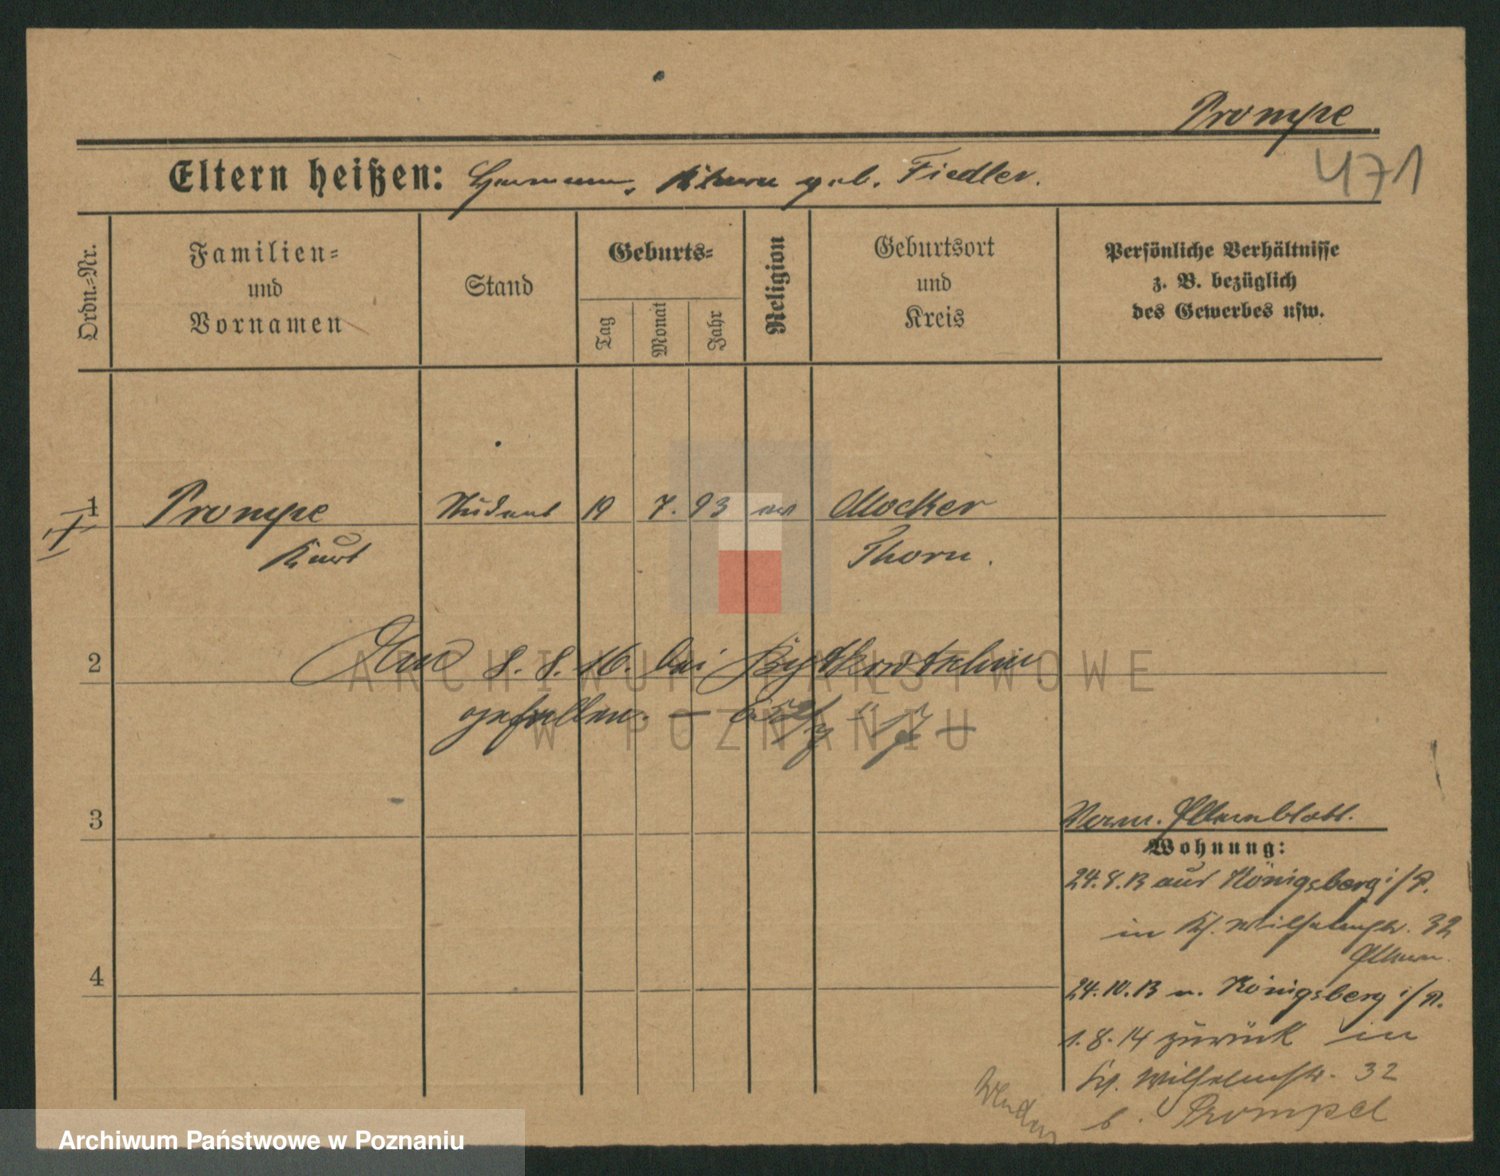 Prompe
471
Eltern heißen: Hermann, geb. Fiedler.
Ordn.-Nr.
Familien-
und
Vornamen
Stand
Geburts-
Tag
Monat
Jahr
Religion
Geburtsort
und
Kreis
Persönliche Verhältnisse
z. B. bezüglich
des Gewerbes usw.
1 Prompe Student 19 7. 93 ev Mocker
Kurt Thorn.
2 8. 8. 16. bei
gefallen. —
3
Verm. Elternblatt.
Wohnung:
24.8.13 aus Königsberg i/P.
in Kl. Wilhelmstr. 32
Eltern.
4
24.10.13 n. Königsberg i/P.
1.8.14 zurück in
Wilhelmstr. 32
b. Prompe
Wenden
ARCHIWUM PAŃSTWOWE
W POZNANIU
Archiwum Państwowe w Poznaniu